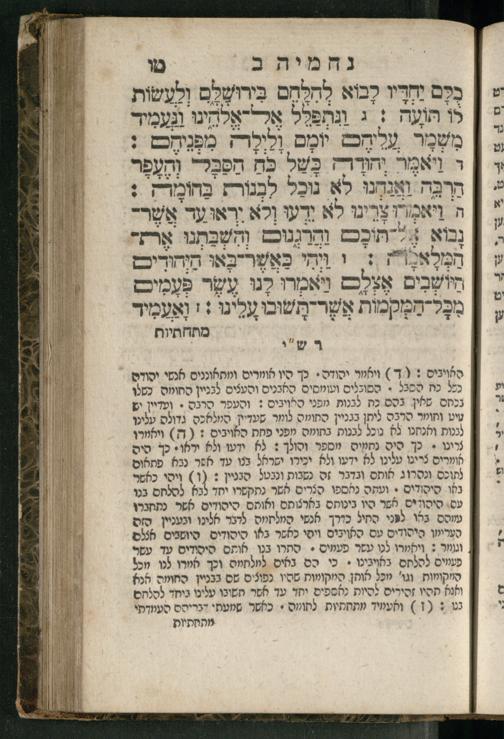 נחמיה ב טו
כֻלָּם יַחְדָּיו לָבוֹא לְהִלָּחֵם בִּירוּשָׁלָ͏ִם וְלַעֲשׂוֹת
לוֹ תּוֹעָה : ג וַנִּתְפַּלֵּל אֶל־אֱלֹהֵינוּ וַנַּעֲמִיד
מִשְׁמָר עֲלֵיהֶם יוֹמָם וָלַיְלָה מִפְּנֵיהֶם :
ד וַיֹּאמֶר יְהוּדָה כָּשַׁל כֹּחַ הַסַּבָּל וְהֶעָפָר
הַרְבֵּה וַאֲנַחְנוּ לֹא נוּכַל לִבְנוֹת בַּחוֹמָה :
ה וַיֹּאמְרוּ צָרֵינוּ לֹא יֵדְעוּ וְלֹא יִרְאוּ עַד אֲשֶׁר־
נָבוֹא אֶל־תּוֹכָם וַהֲרַגְנוּם וְהִשְׁבַּתְנוּ אֶת־
הַמְּלָאכָה : ו וַיְהִי כַּאֲשֶׁר־בָּאוּ הַיְּהוּדִים
הַיּוֹשְׁבִים אֶצְלָם וַיֹּאמְרוּ לָנוּ עֶשֶׂר פְּעָמִים
מִכָּל־הַמְּקֹמוֹת אֲשֶׁר־תָּשׁוּבוּ עָלֵינוּ : ז וָאַעֲמִיד
מתחתיות
רש"י
האויבים : (ד) ויאמר יהודה · כך היו אומרים ומתאוננים אנשי יהודה
כשל כח הסבל · הסובלים ועומסים האבנים והעצים לבניין החומה כשלו
בכחם שאין בהם כח לבנות מפני האויבים : והעפר הרבה · ועדיין יש
טיט וחומר הרבה ליתן בבניין החומה לומר שעדיין המלאכה גדולה עלינו
לבנות ואנחנו לא נוכל לבנות בחומה מפני פחת האויבים : (ה) ויאמרו
צרינו · כך היה נחמיה מספר והולך : לא ידעו ולא יראו · כך היה
אומרים צרינו עלינו לא ידעו ולא יכירו ישראל בנו עד אשר נבא פתאום
לתוכם ונהרוג אותם ובדבר זה נשבות ונבטל הבניין : (ו) ויהי כאשר
באו היהודים · ועתה נאספו הצרים אשר נתקשרו יחד לבא להלחם בנו
עם היהודים אשר היו בינותם בארצותם ואותם היהודים אשר נתחברו
עמהם באו לפני החיל כדרך אנשי המלחמה לדבר אלינו ובעניין הזה
הערימו היהודים עם האויבים ויהי כאשר באו היהודים היושבים אצלם
וגומר : ויאמרו לנו עשר פעמים · התרו בנו אותם היהודים עד עשר
פעמים להלחם באויבינו · כי הם באים למלחמה וכך אמרו לנו מכל
המקומות וגו' מכל אותן המקומות שהיו נפולים שם בבניין החומה אנא
ואנא תהיו זהירים להיות נאספים יחד עד אשר תשובו עלינו ביחד להלחם
בנו : (ז) ואעמיד מתחתיות לחומה · כאשר שמעתי דבריהם העמדתי
מתחתיות